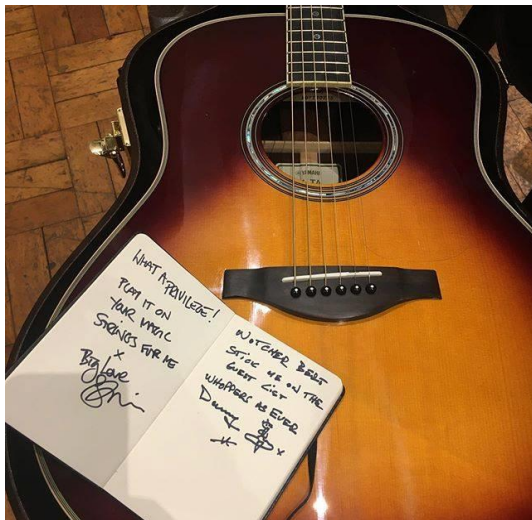 WHAT A PRIVILEGE!
PLAY IT ON
YOUR MAGIC
STRINGS FOR ME
x
Big Love
WOTCHER BERT
STICK ME ON THE
GUEST LIST
WHOPPERS AS EVER
Danny
x
YAMAHA
TA